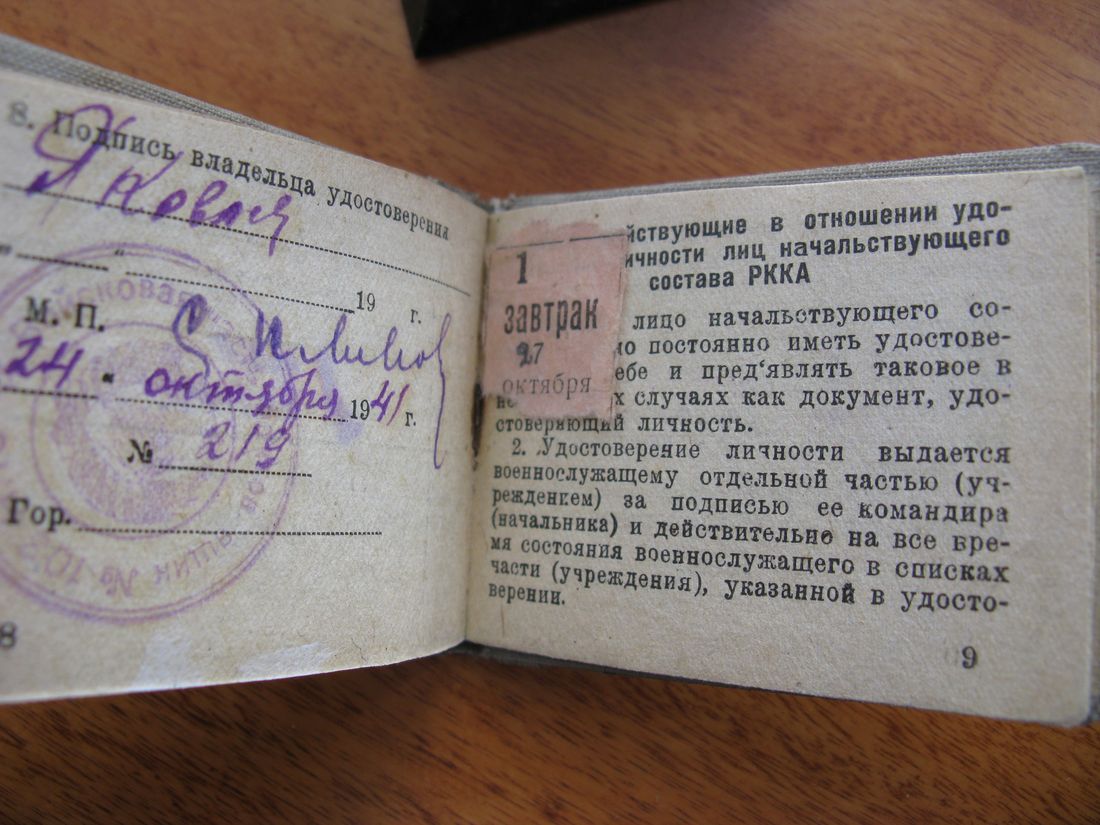 8. Подпись владельца удостоверения
19 г.
М. П.
24 " октября 1941 г.
№ 219
Гор.
8
йствующие в отношении удо-
ичности лиц начальствующего
состава РККА
1
завтрак
27
октября
лицо начальствующего со-
но постоянно иметь удостове-
ебе и пред‘являть таковое в
не х случаях как документ, удо-
стоверяющий личность.
2. Удостоверение личности выдается
военнослужащему отдельной частью (уч-
реждением) за подписью ее командира
(начальника) и действительно на все вре-
мя состояния военнослужащего в списках
части (учреждения), указанной в удосто-
верении.
9